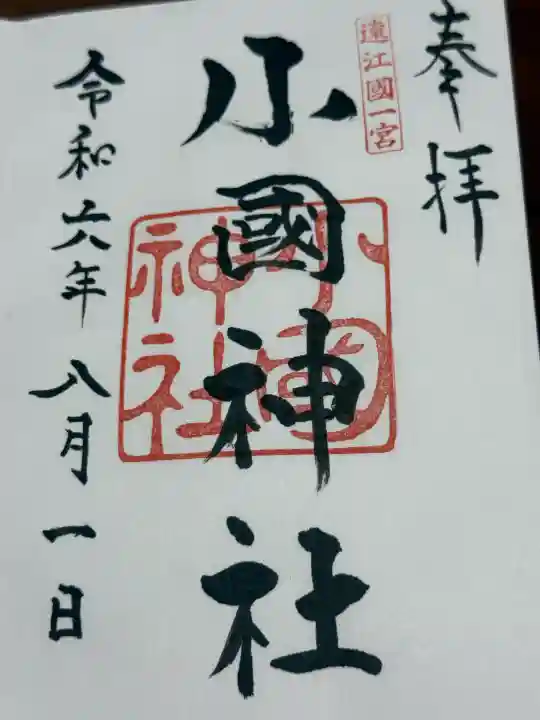 奉拝
遠江國一宮
小國神社
小國神社
令和六年八月一日